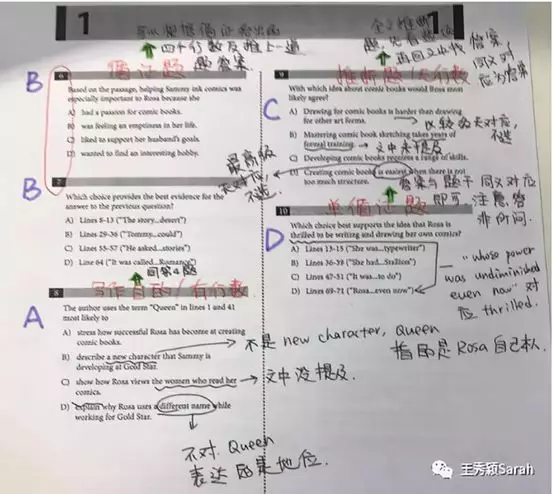 1
1
可以根据循证来出题
四个行数反推上一道
题答案
循证题
B
6
Based on the passage, helping Sammy ink comics was
especially important to Rosa because she
A) had a passion for comic books.
B) was feeling an emptiness in her life.
C) liked to support her husband's goals.
D) wanted to find an interesting hobby.
B
7
Which choice provides the best evidence for the
answer to the previous question?
A) Lines 8-13 ("The story...desert")
B) Lines 29-36 ("Tommy...could")
C) Lines 55-57 ("He asked...stories")
D) Line 64 ("It was called...Romance")
同第4题
写作目的/有行数
A
8
The author uses the term "Queen" in lines 1 and 41
most likely to
A) stress how successful Rosa has become at creating
comic books.
B) describe a new character that Sammy is
developing at Gold Star.
C) show how Rosa views the women who read her
comics.
D) explain why Rosa uses a different name while
working for Gold Star.
不是 new character, Queen
指的是 Rosa 自己本人.
文中没提及.
不对. Queen
表达的是地位.
全文推断
再回文中找答案
同义对
应为答案
推断题/无行数
C
9
With which idea about comic books would Rosa most
likely agree?
A) Drawing for comic books is harder than drawing
for other art forms.
B) Mastering comic book sketching takes years of
formal training.
C) Developing comic books requires a range of skills.
D) Creating comic books is easiest when there is not
too much structure.
比较级无对应,
不选
文中未提及
最高级
无对应,
不选.
答案与题干同义对应
即可. 注意答
非所问.
单循证题
D
10
Which choice best supports the idea that Rosa is
thrilled to be writing and drawing her own comics?
A) Lines 13-15 ("She was...typewriter")
B) Lines 36-39 ("She had...Stallion")
C) Lines 47-51 ("It was...to do")
D) Lines 69-71 ("Rosa...even now")
"whose power
was undiminished
even now" 对
应 thrilled.
王秀颖Sarah